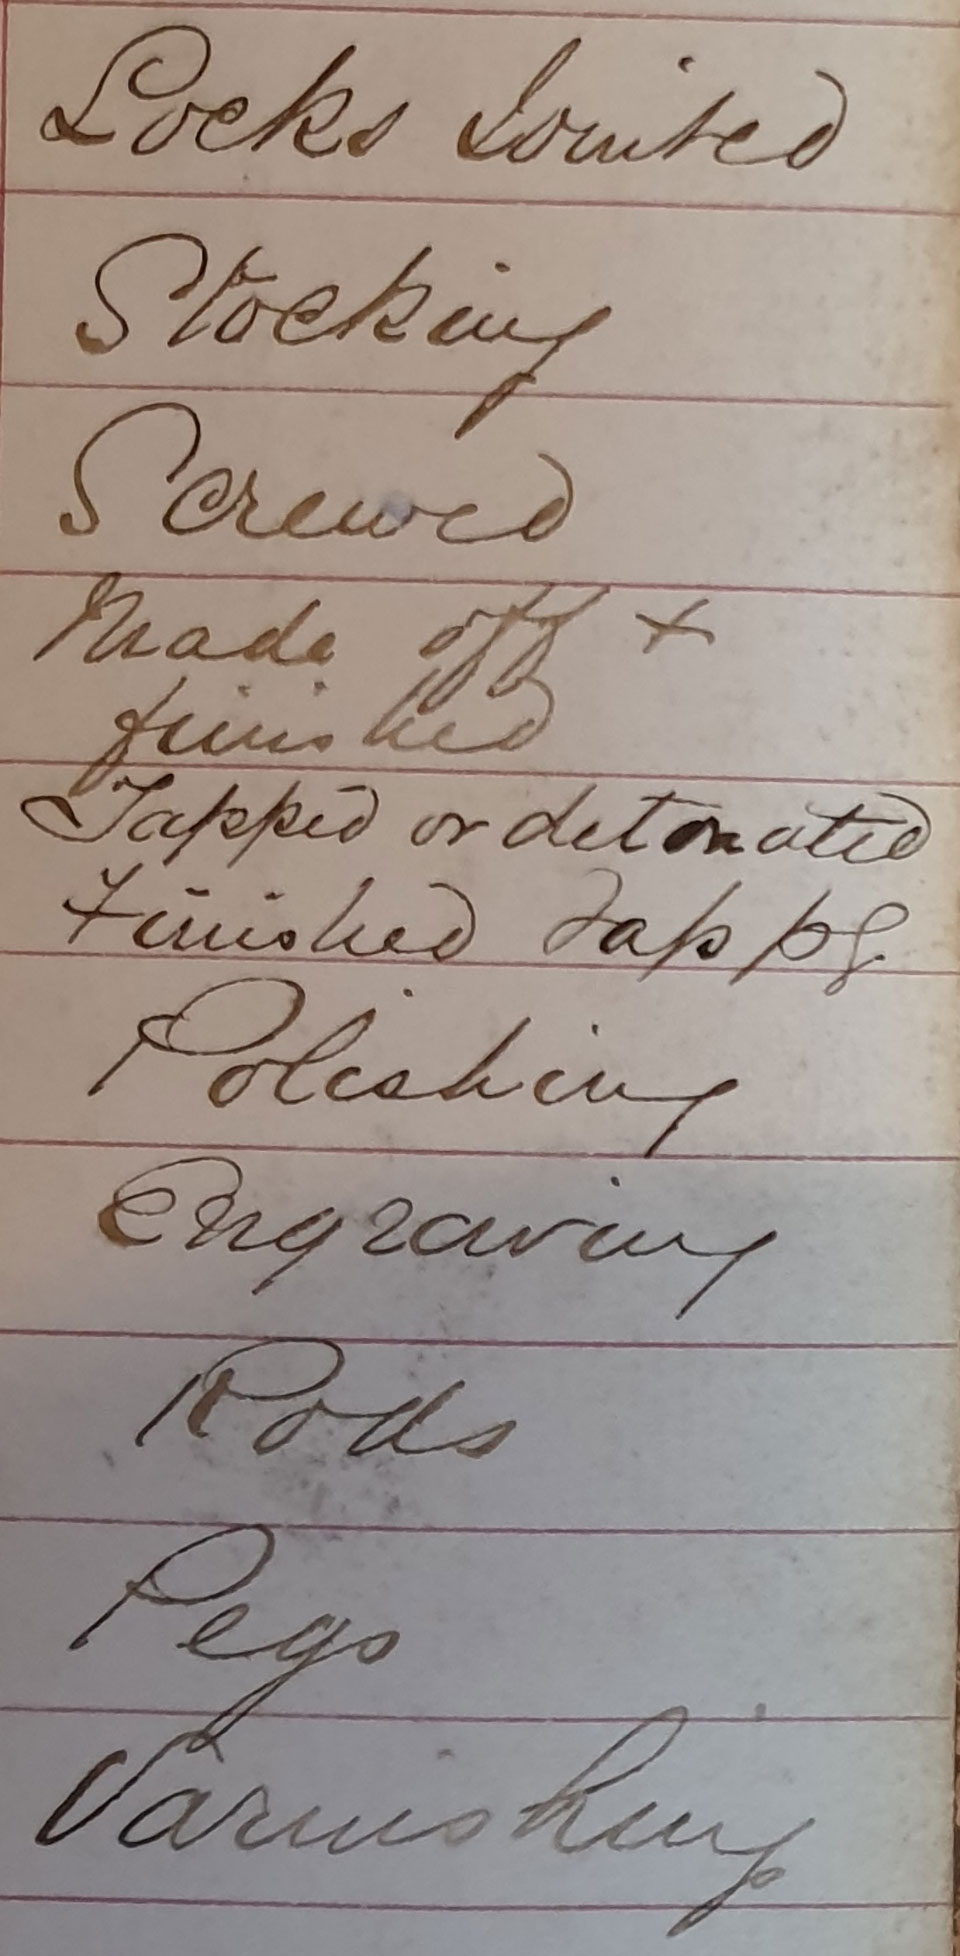 Locks Jointed
Stocking
Screwed
Made off +
finished
Tapped or detonated
Finished Tappg
Polishing
Engraving
Rods
Pegs
Varnishing